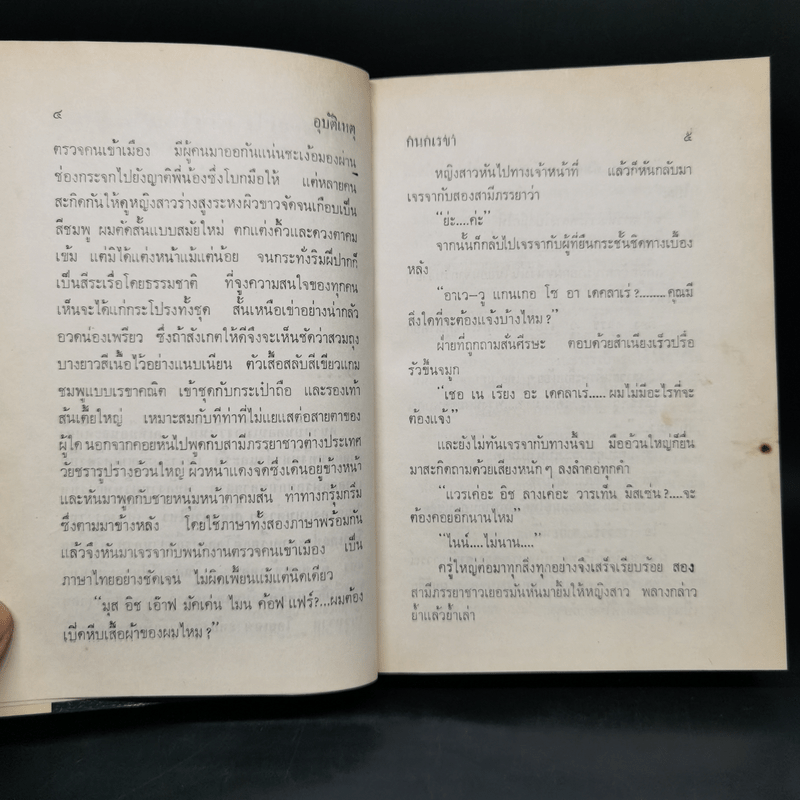 ๔
อุบัติเหตุ
ตรวจคนเข้าเมือง มีผู้คนมาออกันแน่นชะเง้อมองผ่าน
ช่องกระจกไปยังญาติพี่น้องซึ่งโบกมือให้ แต่หลายคน
สะกิดกันให้ดูหญิงสาวร่างสูงระหงผิวขาวจัดจนเกือบเป็น
สีชมพู ผมตัดสั้นแบบสมัยใหม่ ตกแต่งคิ้วและดวงตาคม
เข้ม แต่มิได้แต่งหน้าแม้แต่น้อย จนกระทั่งริมฝีปากก็
เป็นสีระเรื่อโดยธรรมชาติ ที่จูงความสนใจของทุกคน
เห็นจะได้แก่กระโปรงทั้งชุด สั้นเหนือเข่าอย่างน่ากลัว
อวดน่องเพรียว ซึ่งถ้าสังเกตให้ดีจึงจะเห็นชัดว่าสวมถุง
บางยาวสีเนื้อไว้อย่างแนบเนียน ตัวเสื้อสลับสีเขียวแกม
ชมพูแบบเรขาคณิต เข้าชุดกับกระเป๋าถือ และรองเท้า
ส้นเตี้ยใหญ่ เหมาะสมกับทีท่าที่ไม่แยแสต่อสายตาของ
ผู้ใด นอกจากคอยหันไปพูดกับสามีภรรยาชาวต่างประเทศ
วัยชรารูปร่างอ้วนใหญ่ ผิวหน้าแดงจัดซึ่งเดินอยู่ข้างหน้า
และหันมาพูดกับชายหนุ่มหน้าตาคมสัน ท่าทางกรุ้มกริ่ม
ซึ่งตามมาข้างหลัง โดยใช้ภาษาทั้งสองภาษาพร้อมกัน
แล้วจึงหันมาเจรจากับพนักงานตรวจคนเข้าเมือง เป็น
ภาษาไทยอย่างชัดเจน ไม่ผิดเพี้ยนแม้แต่นิดเดียว
“มุส อิช เอ๊าฟ มัคเค่น ไมน ค้อฟ แฟร์?...ผมต้อง
เปิดหีบเสื้อผ้าของผมไหม?”
กนกเรขา
๕
หญิงสาวหันไปทางเจ้าหน้าที่ แล้วก็หันกลับมา
เจรจากับสองสามีภรรยาว่า
“ย่ะ....ค่ะ”
จากนั้นก็กลับไปเจรจากับผู้ที่ยืนกระชั้นชิดทางเบื้อง
หลัง
“อาเว-วู แกนเกอ โช อา เดคลาเร่?........คุณมี
สิ่งใดที่จะต้องแจ้งบ้างไหม?”
ฝ่ายที่ถูกถามสั่นศีรษะ ตอบด้วยสำเนียงเร็วปรื๋อ
รัวขึ้นจมูก
“เชอ เน เรียง อะ เดคลาเร่.....ผมไม่มีอะไรที่จะ
ต้องแจ้ง”
และยังไม่ทันเจรจากับทางนี้จบ มืออ้วนใหญ่ก็ยื่น
มาสะกิดถามด้วยเสียงหนักๆ ลงลำคอทุกคำ
“แวรเค่อะ อิช ลางเค่อะ วารเท็น มิสเซ่น?....จะ
ต้องคอยอีกนานไหม”
“ไนน์....ไม่นาน....”
ครู่ใหญ่ต่อมาทุกสิ่งทุกอย่างจึงเสร็จเรียบร้อย สอง
สามีภรรยาชาวเยอรมันหันมายิ้มให้หญิงสาว พลางกล่าว
ย้ำแล้วย้ำเล่า